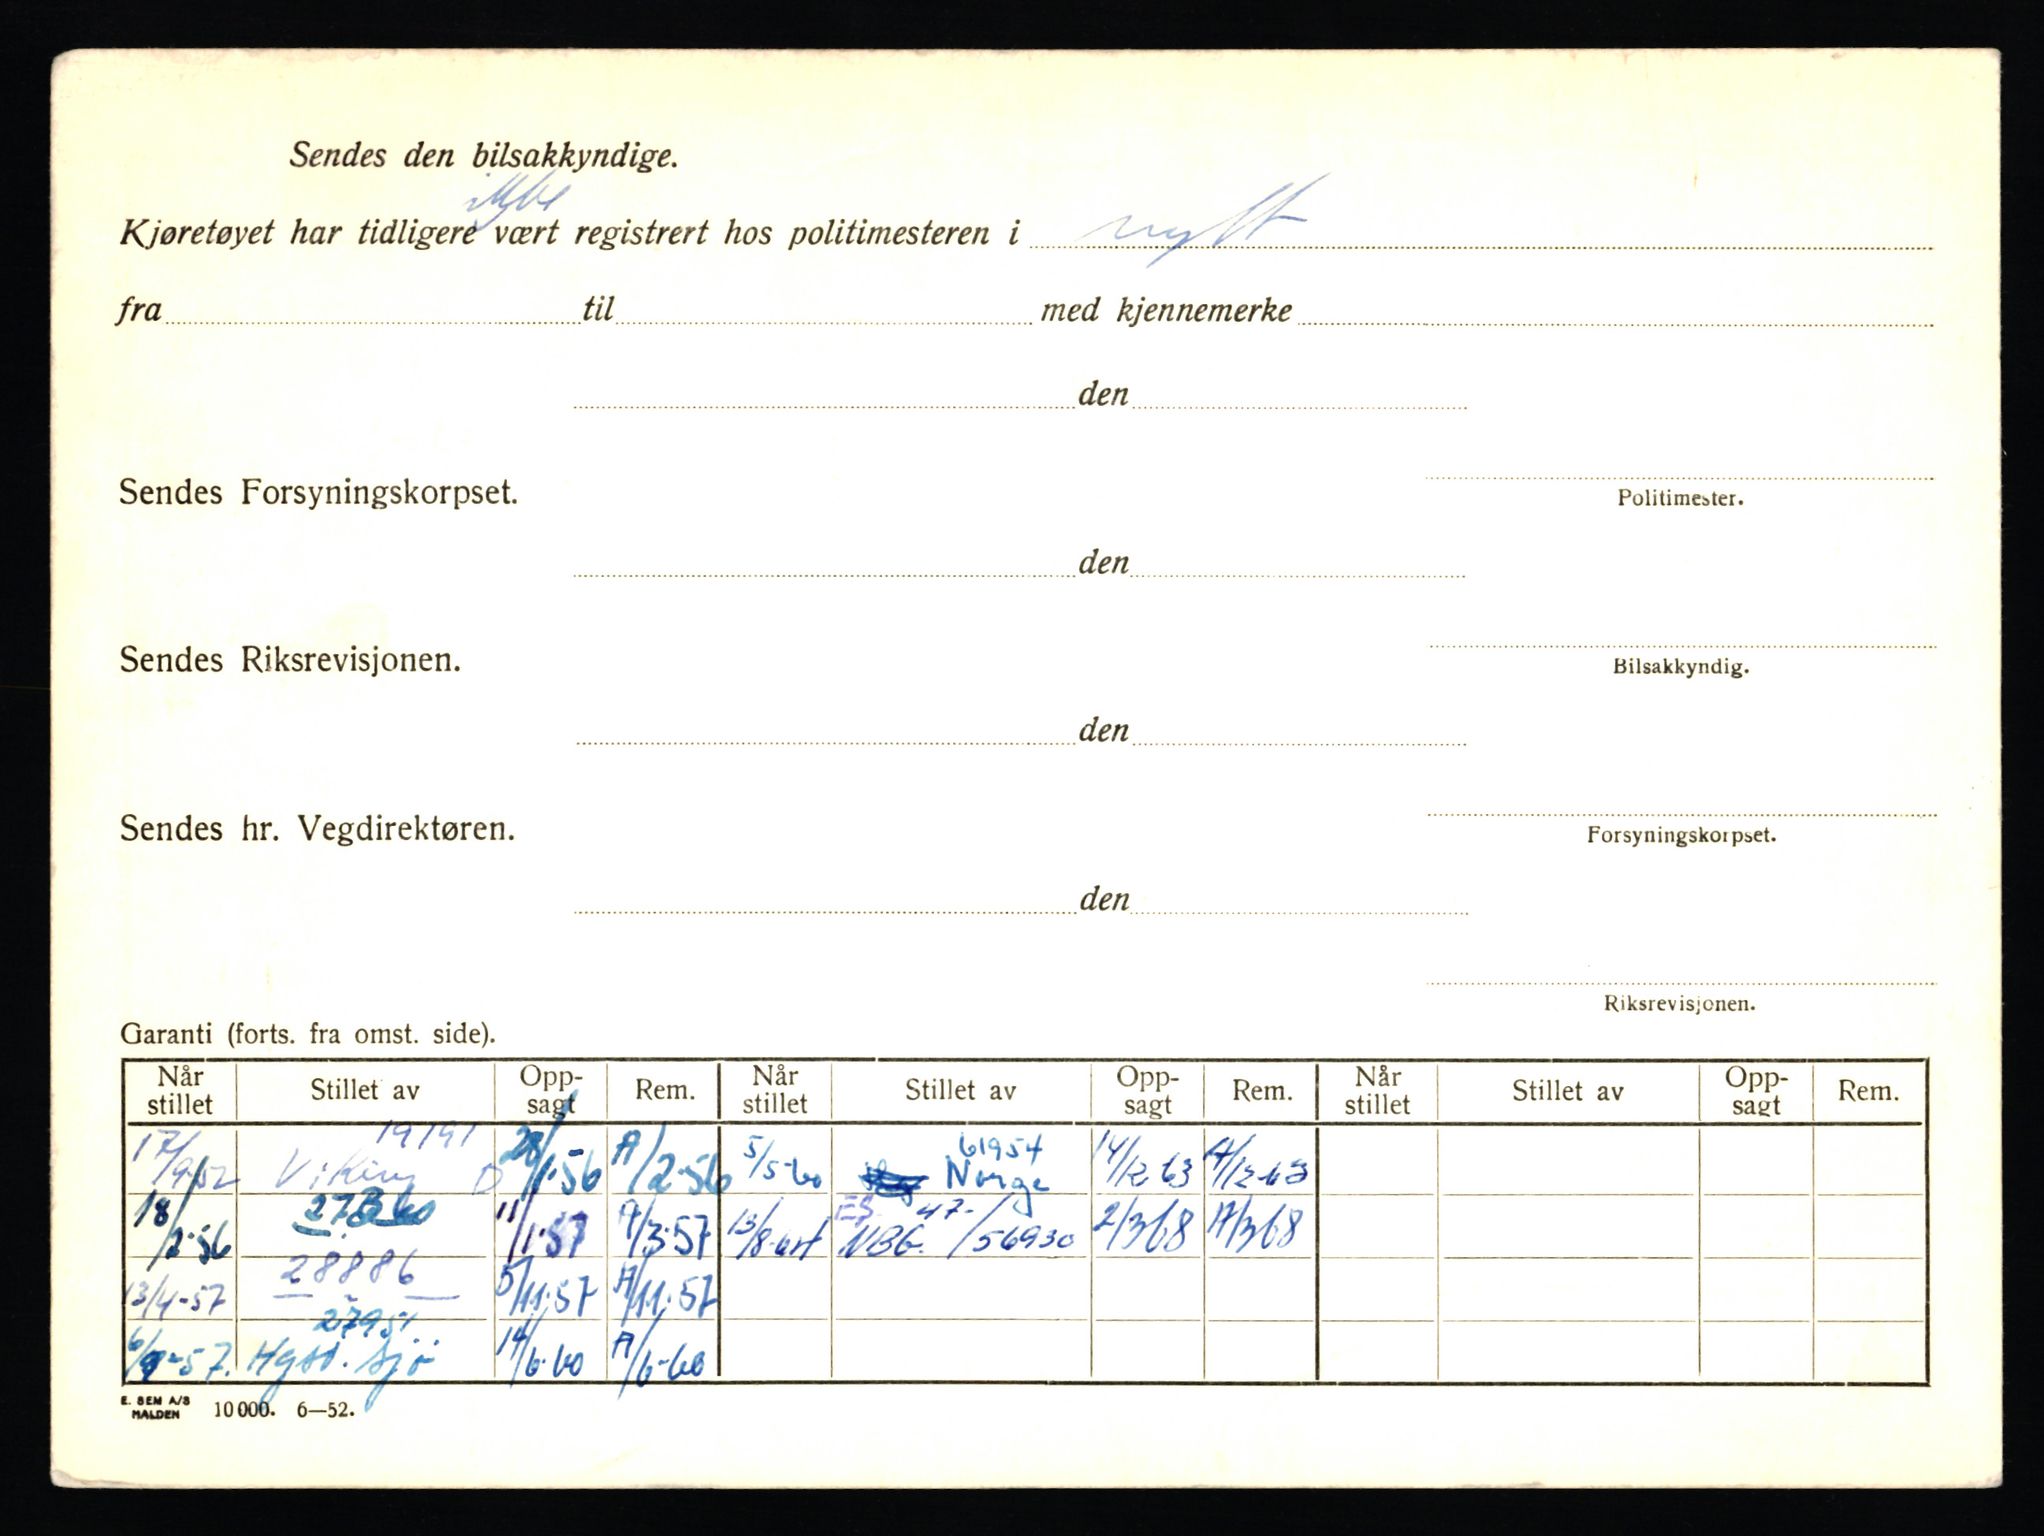 Sendes den bilsakkyndige.
ikke
Kjøretøyet har tidligere vært registrert hos politimesteren i nytt
fra til med kjennemerke
den
Sendes Forsyningskorpset.
Politimester.
den
Sendes Riksrevisjonen.
Bilsakkyndig.
den
Sendes hr. Vegdirektøren.
Forsyningskorpset.
den
Riksrevisjonen.
Garanti (forts. fra omst. side).
Når stillet Stillet av Opp-sagt Rem. Når stillet Stillet av Opp-sagt Rem. Når stillet Stillet av Opp-sagt Rem.
19191 61954
17/9-52 Viking D 28/1-56 A/2-56 5/5-60 Norge 14/12-63 A/12-63
18/2-56 11/1-57 A/3-57 NBG. 47-/56930 2/3 68 A/3 68
28886
13/4-57 5/11-57 A/11-57
27951
-57. Hgsd. Sjø 14/6-60 A/6-60
E. SEM A/S
HALDEN 10 000. 6—52.